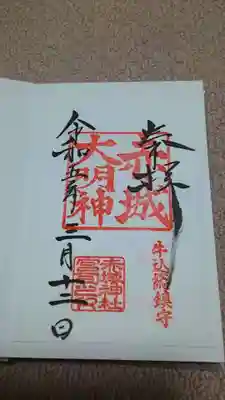 奉拝
赤城
大明神
牛込総鎮守
赤城神社
令和五年三月十二日